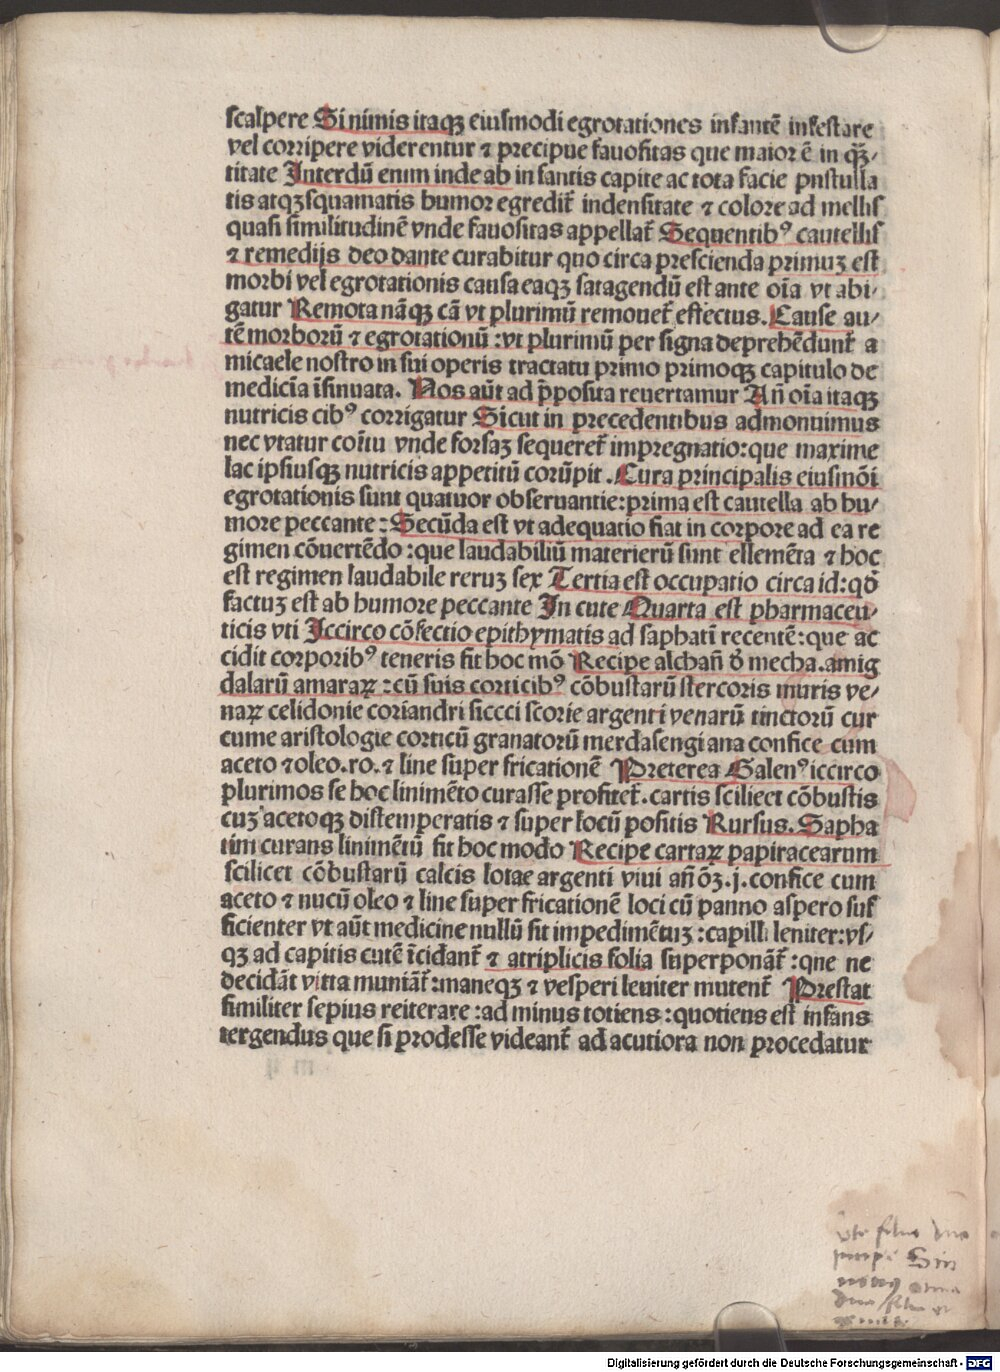 scalpere Si nimis itaqꝫ eiusmodi egrotationes infantē infestare
vel corripere viderentur ⁊ precipue fauositas que maior ē in qᷓꝫ-
titate Interdū enim inde ab in fantis capite ac tota facie pustulla
tis atqꝫ squamatis humor egredit᷑ indensitate ⁊ colore ad mellis
quasi similitudinē vnde fauositas appellat᷑ Sequentibꝰ cautellis
⁊ remedijs deo dante curabitur quo circa prescienda primuꝫ est
morbi vel egrotationis causa eaqꝫ satagendū est ante oīa vt abi-
gatur Remota nāqꝫ cā vt plurimū remouet᷑ effectus. Cause au-
tē morborū ⁊ egrotationū : vt plurimū per signa deprehēdunt᷑ a
micaele nostro in sui operis tractatu primo primoqꝫ capitulo de
medicīa īsinuata. Nos aūt ad ꝓposita reuertamur Añ oīa itaqꝫ
nutricis cibꝰ corrigatur Sicut in precedentibus admonuimus
nec vtatur coītu vnde forsaꝫ sequeret᷑ impregnatio: que maxime
lac ipsiusqꝫ nutricis appetitū corūpit . Cura principalis eiusmōi
egrotationis sunt quatuor obseruantie: prima est cautella ab hu-
more peccante : Secūda est vt adequatio fiat in corpore ad ea re
gimen cōuertēdo : que laudabiliū materierū sunt ellemēta ⁊ hoc
est regimen laudabile reruꝫ sex Tertia est occupatio circa id: qđ
factuꝫ est ab humore peccante In cute Quarta est pharmaceu-
ticis vti Iccirco cōfectio epithymatis ad saphatī recentē: que ac
cidit corporibꝰ teneris fit hoc mō Recipe alchañ đ mecha. amig
dalarū amaraꝝ : cū suis corticibꝰ cōbustarū stercoris muris ve-
naꝝ celidonie coriandri siccci scorie argenti venarū tinctorū cur
cume aristologie corticū granatorū merdasengi ana confice cum
aceto ⁊ oleo. ro. ⁊ line super fricationē Preterea Galenꝰ iccirco
plurimos se hoc linimēto curasse profitet᷑. cartis sciliect cōbustis
cuꝫ acetoqꝫ distemperatis ⁊ super locū positis Rursus. Sapha
tim curans linimētū fit hoc modo Recipe cartaꝝ papiracearum
scilicet cōbustarū calcis lotae argenti viui añ ōꝫ. j. confice cum
aceto ⁊ nucū oleo ⁊ line super fricationē loci cū panno aspero suf
ficienter vt aūt medicine nullū sit impedimētuꝫ : capilli leniter: vs-
qꝫ ad capitis cutē īcidant᷑ ⁊ atriplicis folia superponāt᷑ : que ne
decidāt vitta muniāt᷑: maneqꝫ ⁊ vesperi leuiter mutent᷑ Prestat
similiter sepius reiterare : ad minus totiens : quotiens est infans
tergendus que si prodesse videant᷑ ad acutiora non procedatur
Digitalisierung gefördert durch die Deutsche Forschungsgemeinschaft - DFG